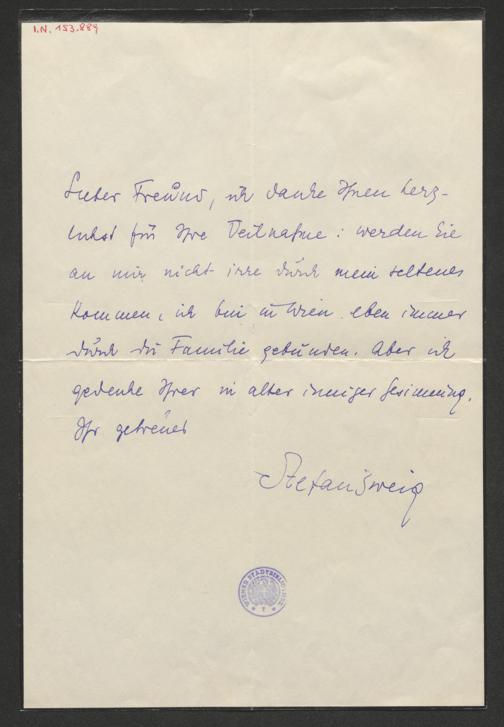 I.N. 153.889
Lieber Freund, ich danke Ihnen herz-
lichst für Ihre Teilnahme: werden Sie
an mir nicht irre durch mein seltenes
Kommen, ich bin in Wien eben immer
durch die Familie gebunden. Aber ich
gedenke Ihrer in alter inniger Gesinnung.
Ihr getreuer
Stefan Zweig
WIENER STADTBIBLIOTHEK